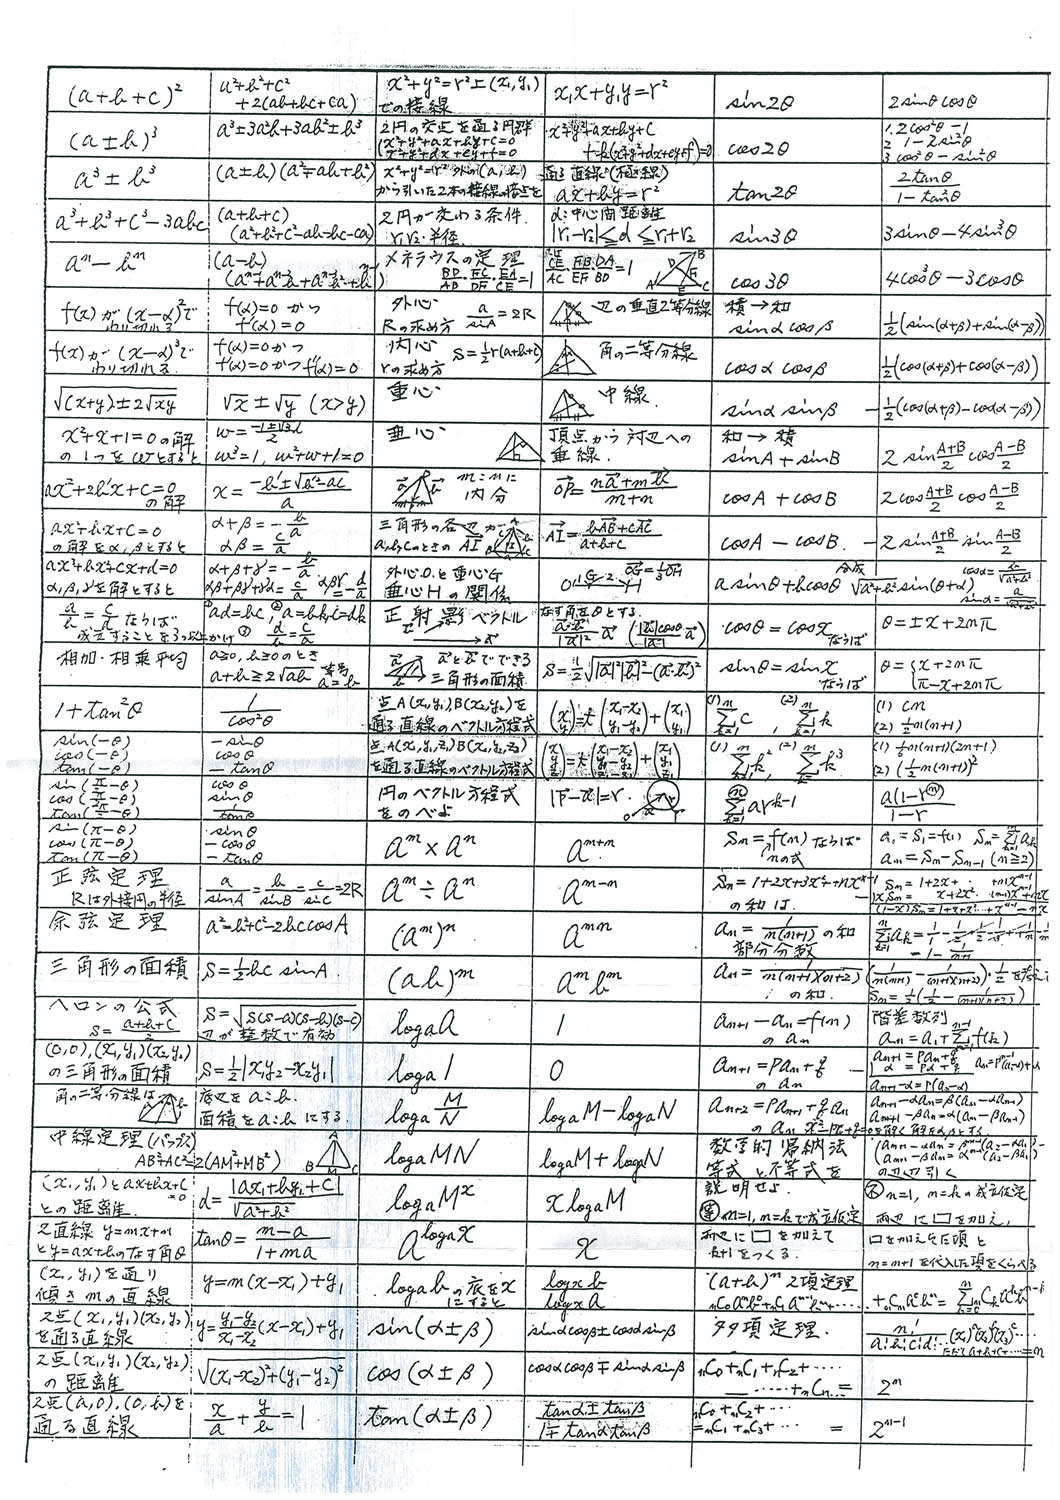 (a+b+c)² a²+b²+c²+2(ab+bc+ca) x²+y²=r²上(x₁,y₁)での接線 x₁x+y₁y=r² sin2θ 2sinθcosθ
(a±b)³ a³±3a²b+3ab²±b³ 2円の交点を通る円群 x²+y²+ax+by+c=0 x²+y²+dx+ey+f=0 x²+y²+ax+by+c+k(x²+y²+dx+ey+f)=0 cos2θ 1. 2cos²θ-1 2 1-2sin²θ 3 cos²θ-sin²θ
a³±b³ (a±b)(a²∓ab+b²) x²+y²=r²外の(a,b)から引いた2本の接線の接点を 通る直線(極線) ax+by=r² tan2θ 2tanθ/1-tan²θ
a³+b³+c³-3abc (a+b+c)(a²+b²+c²-ab-bc-ca) 2円が交わる条件. r₁r₂:半径 d:中心間距離 |r₁-r₂|≦d≦r₁+r₂ sin3θ 3sinθ-4sin³θ
aⁿ-bⁿ (a-b) メネラウスの定理 BD/AB・FC/DF・EA/CE=1 CE/AC・FB/EF・DA/BD=1 cos3θ 4cos³θ-3cosθ
f(x)が(x-α)²でわり切れる f(α)=0かつ f'(α)=0 外心 Rの求め方 a/sinA=2R 辺の垂直2等分線 積→和 sinαcosβ ½(sin(α+β)+sin(α-β))
f(x)が(x-α)³でわり切れる f(α)=0かつ f'(α)=0かつf''(α)=0 内心 rの求め方 S=½r(a+b+c) 角の二等分線 cosαcosβ ½(cos(α+β)+cos(α-β))
√(x+y)±2√xy √x±√y (x>y) 重心 中線. sinαsinβ -½(cos(α+β)-cos(α-β))
x²+x+1=0の解の1つをωとすると ω=-1±√3i/2 ω³=1, ω²+ω+1=0 垂心 頂点から対辺への垂線. 和→積 sinA+sinB 2sin A+B/2 cos A-B/2
ax²+2b'x+c=0の解 x=-b'±√b'²-ac/a m:nに内分 OP=na+mb/m+n cosA+cosB 2cos A+B/2 cos A-B/2
ax²+bx+c=0の解をα,βとすると α+β=-b/a αβ=c/a 三角形の各辺が a,b,cのときのAI AI=bAB+cAC/a+b+c cosA-cosB. -2sin A+B/2 sin A-B/2
ax³+bx²+cx+d=0 α,β,γを解とすると α+β+γ=-b/a αβ+βγ+γα=c/a αβγ=-d/a 外心O.と重心G 垂心Hの関係 O G H OG=⅓OH asinθ+bcosθ 合成 √a²+b² sin(θ+α)
a/b=c/dならば 成立することを3つ以上かけ ①ad=bc, ②a=bk,c=dk ③d/b=c/a 正射影ベクトル なす角をθとする. cosθ=cosxならば θ=±x+2nπ
相加・相乗平均 a≧0, b≧0のとき a+b≧2√ab 等号a=b aとbでできる三角形の面積 S=½√|a|²|b|²-(a・b)² sinθ=sinxならば θ={x+2nπ π-x+2nπ
1+tan²θ 1/cos²θ 点A(x₁,y₁),B(x₂,y₂)を通る直線のベクトル方程式 (x y)=t(x₁-x₂ y₁-y₂)+(x₁ y₁) (1) Σc, (2) Σk (1) cn (2) ½n(n+1)
sin(-θ) cos(-θ) tan(-θ) -sinθ cosθ -tanθ 点A(x₁,y₁,z₁)B(x₂,y₂,z₂)を通る直線のベクトル方程式 (x y z)=t(x₁-x₂ y₁-y₂ z₁-z₂)+(x₁ y₁ z₁) (1) Σk², (2) Σk³ (1) ⅙n(n+1)(2n+1) (2) (½n(n+1))²
sin(π/2-θ) cos(π/2-θ) tan(π/2-θ) cosθ sinθ 1/tanθ 円のベクトル方程式をのべよ |p-a|=r. Σar^k-1 a(1-rⁿ)/1-r
sin(π-θ) cos(π-θ) tan(π-θ) sinθ -cosθ -tanθ aᵐ×aⁿ aᵐ⁺ⁿ Sn=f(n)ならば nの式 a₁=S₁=f(1) Sn=Σak an=Sn-Sn-1 (n≧2)
正弦定理 Rは外接円の半径 a/sinA=b/sinB=c/sinC=2R aᵐ÷aⁿ aᵐ⁻ⁿ Sn=1+2x+3x²+…+nxⁿ⁻¹の和は.
余弦定理 a²=b²+c²-2bccosA (aᵐ)ⁿ aᵐⁿ an=1/n(n+1)の和 部分分数 =1-1/n+1
三角形の面積 S=½bc sinA. (ab)ᵐ aᵐbᵐ an=1/n(n+1)(n+2)の和. Sn=½(½-1/(n+1)(n+2))
ヘロンの公式 s=a+b+c/2 S=√s(s-a)(s-b)(s-c) 辺が整数で有効 logaA 1 an+1-an=f(n)のan 階差数列 an=a₁+Σf(k)
(0,0),(x₁,y₁)(x₂,y₂)の三角形の面積 S=½|x₁y₂-x₂y₁| loga1 0 an+1=pan+qのan an+1=pan+q α=pα+q an+1-α=p(an-α)
角の二等分線は 底辺をa:b. 面積をa:bにする loga M/N logaM-logaN an+2=pan+1+qanのan an+2-αan+1=β(an+1-αan) an+2-βan+1=α(an+1-βan)
中線定理(パップス) AB²+AC²=2(AM²+MB²) logaMN logaM+logaN 数学的帰納法 等式と不等式を の辺辺引く
(x₁,y₁)とax+by+c=0との距離. d=|ax₁+by₁+c|/√a²+b² logaMˣ xlogaM 説明せよ. 等n=1, n=kで成立仮定 不n=1, n=kの成立仮定
2直線 y=mx+n とy=ax+bのなす角θ tanθ=m-a/1+ma a^logax x 両辺に□を加えて k+1をつくる. 両辺に□を加え, □を加えた項と n=n+1を代入した項をくらべる
(x₁,y₁)を通り 傾きmの直線 y=m(x-x₁)+y₁ logabの底をxにすると logxb/logxa (a+b)ⁿ 2項定理
2点(x₁,y₁)(x₂,y₂)を通る直線 y=y₁-y₂/x₁-x₂(x-x₁)+y₁ sin(α±β) sinαcosβ±cosαsinβ 多項定理.
2点(x₁,y₁)(x₂,y₂)の距離 √(x₁-x₂)²+(y₁-y₂)² cos(α±β) cosαcosβ∓sinαsinβ nC0+nC1+nC2+‥‥ ‥‥+nCn= 2ⁿ
2点(a,0),(0,b)を通る直線 x/a+y/b=1 tan(α±β) tanα±tanβ/1∓tanαtanβ nC0+nC2+‥ =nC1+nC3+‥ = 2ⁿ⁻¹